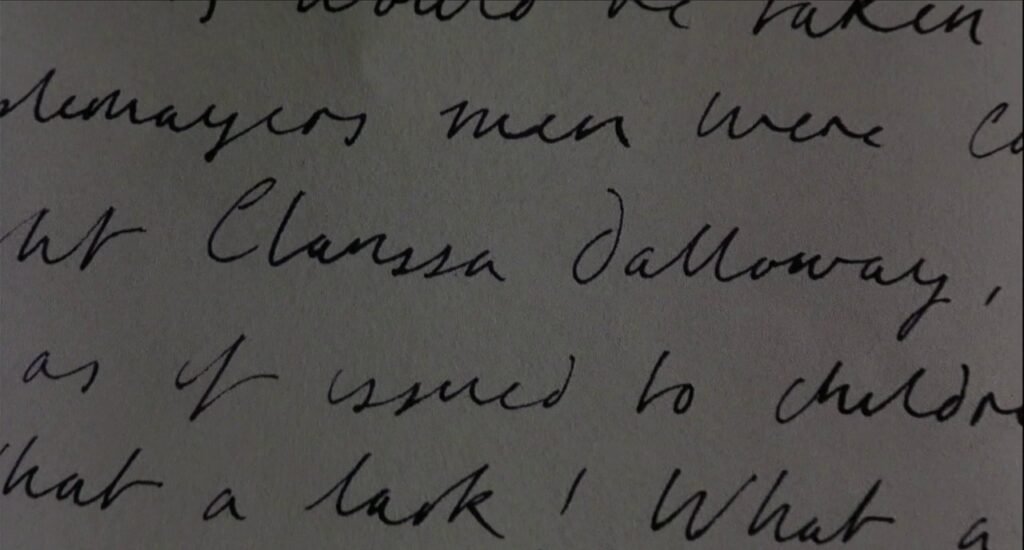 would be taken
lemayers men were co
ht Clarissa Dalloway,
as if issued to childre
hat a lark! What a